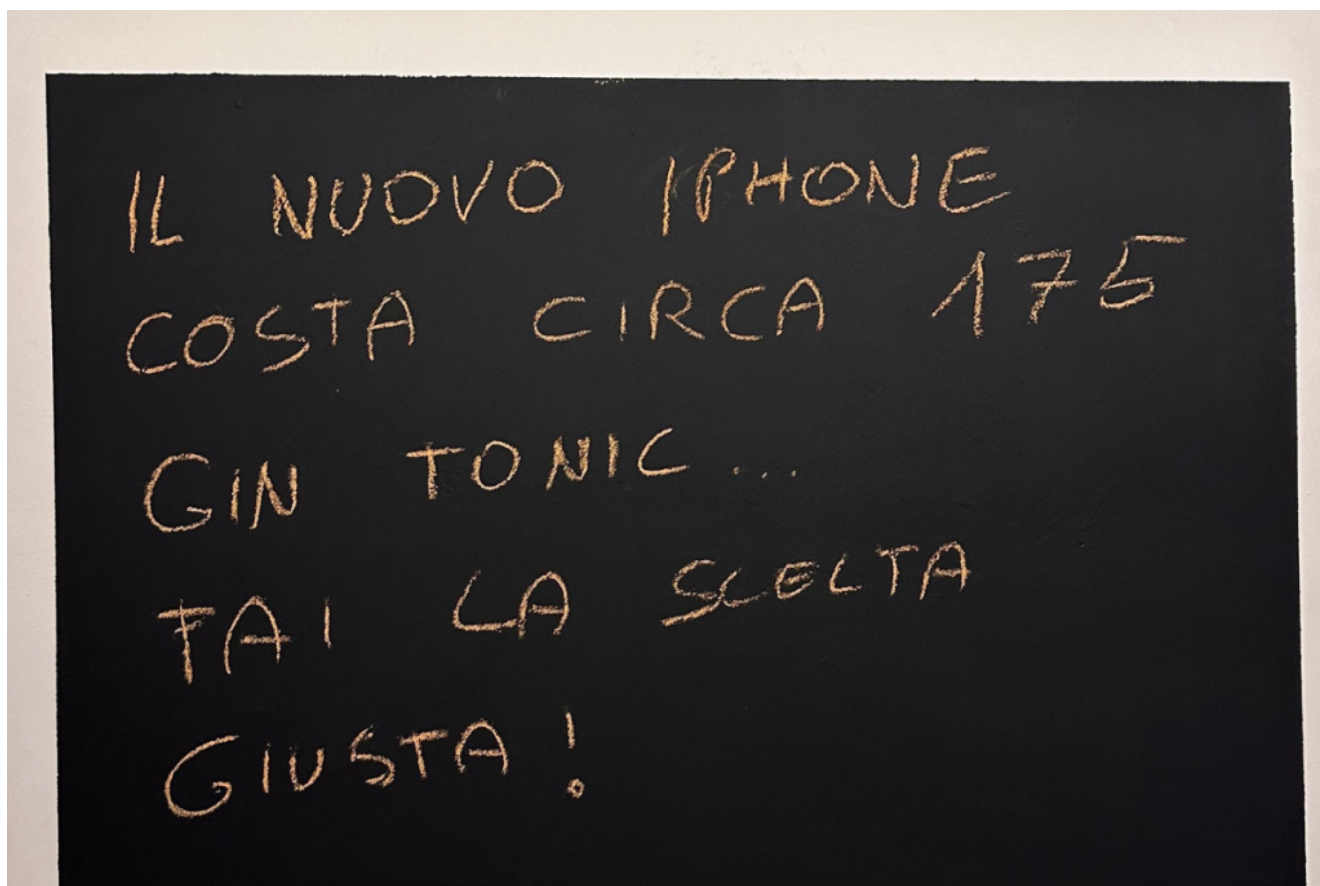 IL NUOVO IPHONE
COSTA CIRCA 175
GIN TONIC...
FAI LA SCELTA
GIUSTA!